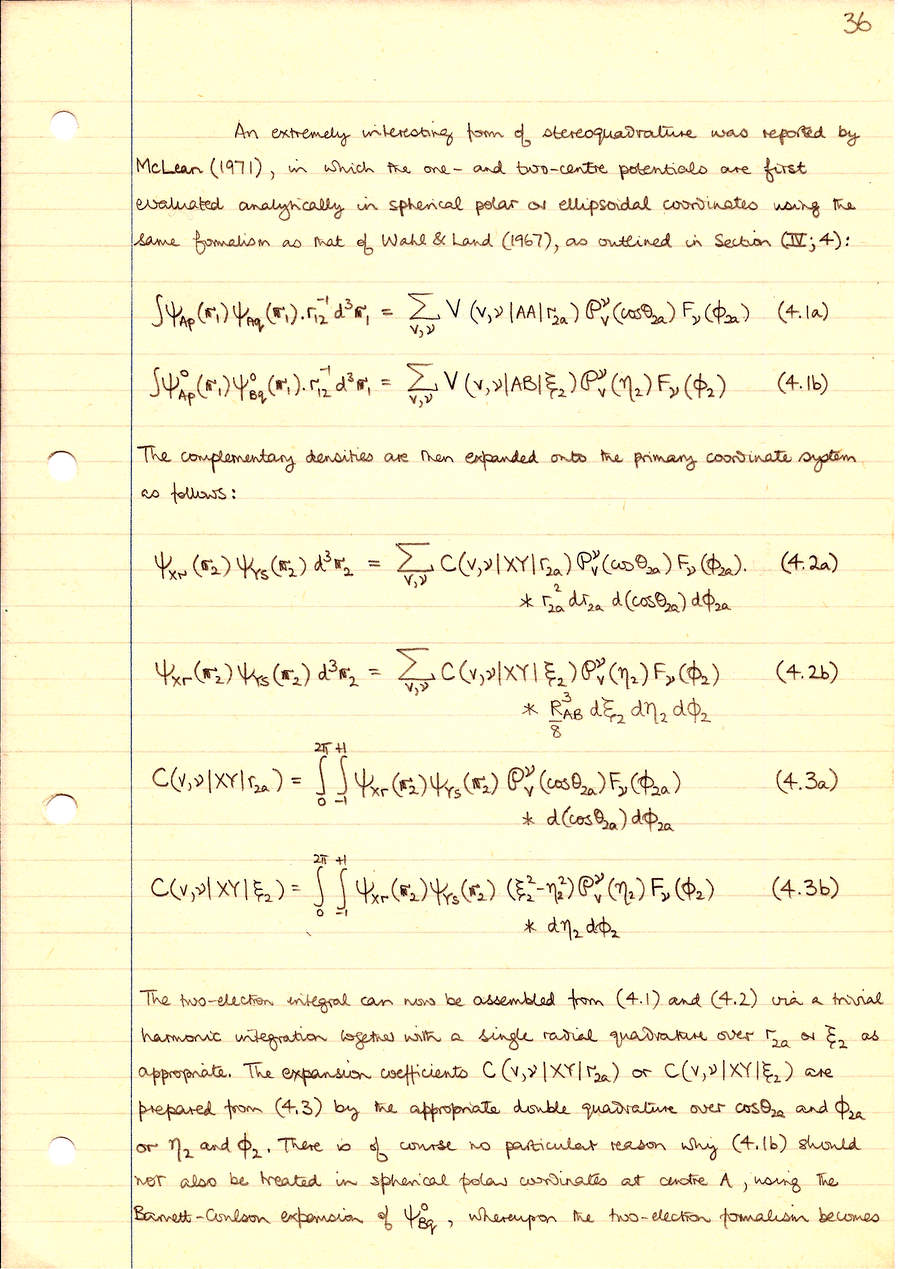 36
An extremely interesting form of stereoquadrature was reported by
McLean (1971), in which the one- and two-centre potentials are first
evaluated analytically in spherical polar or ellipsoidal coordinates using the
same formalism as that of Wahl & Land (1967), as outlined in Section (IV;4):
∫ψ_Ap(𝐫₁)ψ_Aq(𝐫₁).r₁₂⁻¹d³𝐫₁ = ∑_{v,ν} V(v,ν|AA|r_2a) 𝒫_v^ν(cosθ_2a) F_ν(ϕ_2a) (4.1a)
∫ψ°_Ap(𝐫₁)ψ°_Bq(𝐫₁).r₁₂⁻¹d³𝐫₁ = ∑_{v,ν} V(v,ν|AB|ξ₂) 𝒫_v^ν(η₂) F_ν(ϕ₂) (4.1b)
The complementary densities are then expanded onto the primary coordinate system
as follows:
ψ_Xr(𝐫₂) ψ_Ys(𝐫₂) d³𝐫₂ = ∑_{v,ν} C(v,ν|XY|r_2a) 𝒫_v^ν(cosθ_2a) F_ν(ϕ_2a). (4.2a)
* r_2a² dr_2a d(cosθ_2a) dϕ_2a
ψ_Xr(𝐫₂) ψ_Ys(𝐫₂) d³𝐫₂ = ∑_{v,ν} C(v,ν|XY|ξ₂) 𝒫_v^ν(η₂) F_ν(ϕ₂) (4.2b)
* R_AB³/8 dξ₂ dη₂ dϕ₂
C(v,ν|XY|r_2a) = ∫_0^{2π} ∫_{-1}^{+1} ψ_Xr(𝐫₂)ψ_Ys(𝐫₂) 𝒫_v^ν(cosθ_2a) F_ν(ϕ_2a) (4.3a)
* d(cosθ_2a) dϕ_2a
C(v,ν|XY|ξ₂) = ∫_0^{2π} ∫_{-1}^{+1} ψ_Xr(𝐫₂)ψ_Ys(𝐫₂) (ξ₂²-η₂²) 𝒫_v^ν(η₂) F_ν(ϕ₂) (4.3b)
* dη₂ dϕ₂
The two-electron integral can now be assembled from (4.1) and (4.2) via a trivial
harmonic integration together with a single radial quadrature over r_2a or ξ₂ as
appropriate. The expansion coefficients C(v,ν|XY|r_2a) or C(v,ν|XY|ξ₂) are
prepared from (4.3) by the appropriate double quadrature over cosθ_2a and ϕ_2a
or η₂ and ϕ₂. There is of course no particular reason why (4.1b) should
not also be treated in spherical polar coordinates at centre A, using the
Barnett-Coulson expansion of ψ°_Bq, whereupon the two-electron formalism becomes